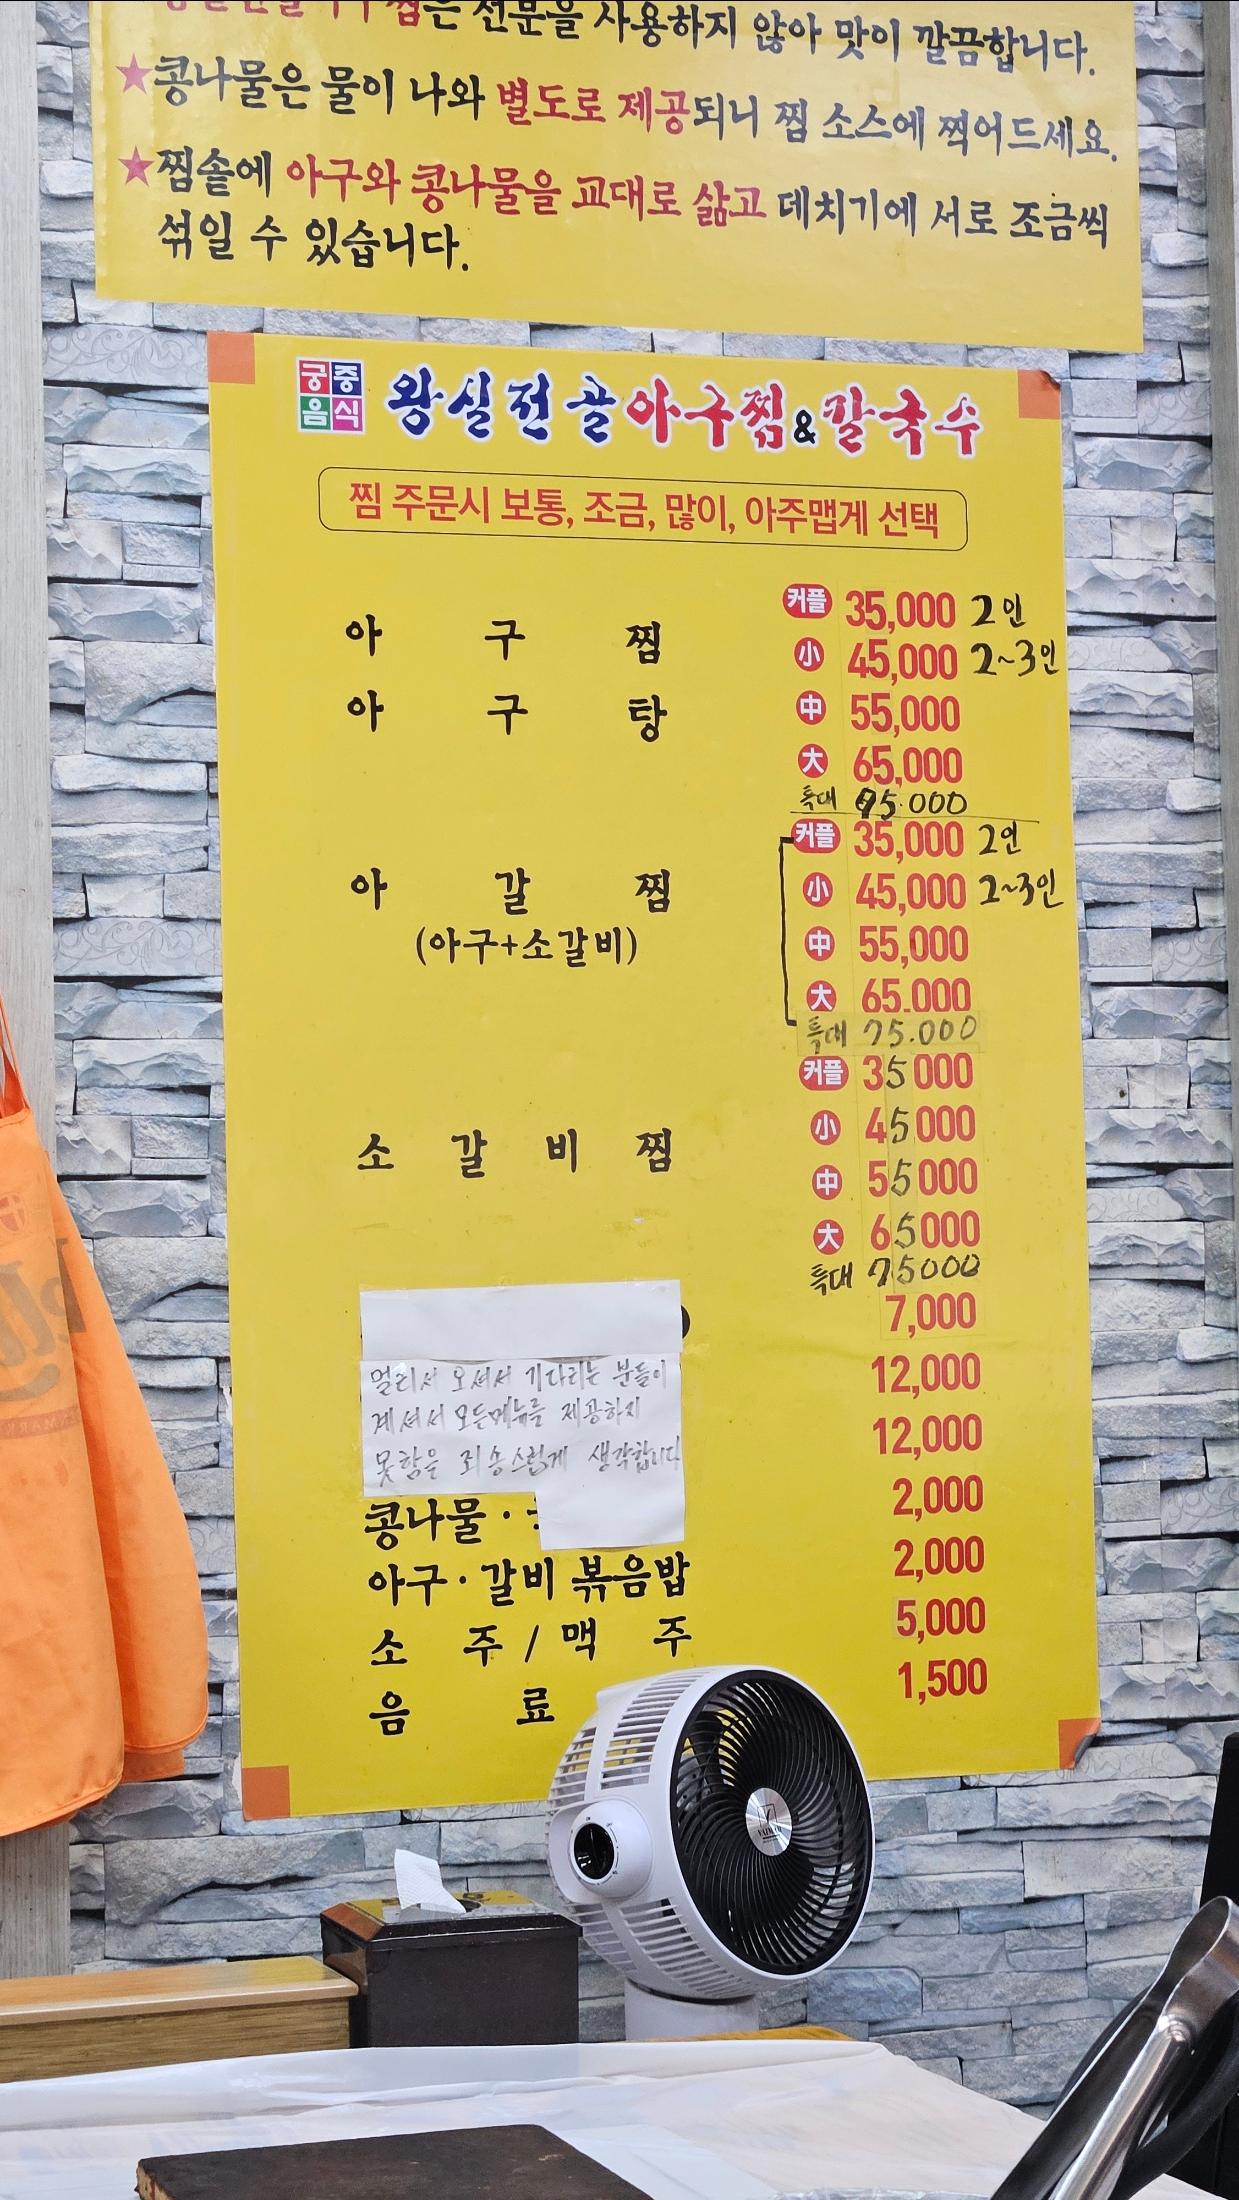 은 전분을 사용하지 않아 맛이 깔끔합니다.
★콩나물은 물이 나와 별도로 제공되니 찜 소스에 찍어드세요.
★찜솥에 아구와 콩나물을 교대로 삶고 데치기에 서로 조금씩
섞일 수 있습니다.
궁중음식 왕실전골아구찜&칼국수
찜 주문시 보통, 조금, 많이, 아주맵게 선택
커플 35,000 2인
아구찜 小 45,000 2~3인
아구탕 中 55,000
大 65,000
특대 75.000
커플 35,000 2인
아갈찜 小 45,000 2~3인
(아구+소갈비) 中 55,000
大 65.000
특대 75.000
커플 35000
소갈비찜 小 45000
中 55000
大 65000
특대 75000
7,000
멀리서 오셔서 기다리는 분들이 12,000
계셔서 모든메뉴를 제공하지 12,000
못함을 죄송스럽게 생각합니다
콩나물· 2,000
아구·갈비 볶음밥 2,000
소주/맥주 5,000
음료 1,500